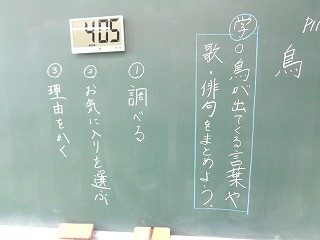 鳥
学
○鳥が出てくる言葉や
歌・俳句をまとめよう。
① 調べる
② お気に入りを選ぶ
③ 理由をかく
405